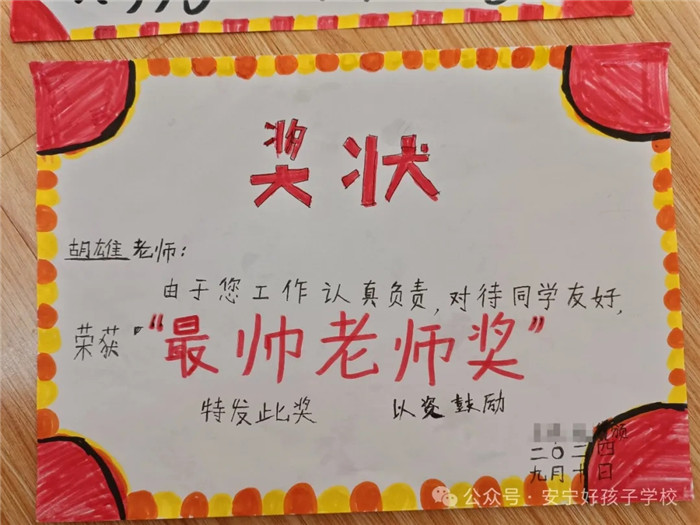 奖状
胡雄老师:
由于您工作认真负责,对待同学友好,
荣获“最帅老师奖”
特发此奖 以资鼓励
二〇二四
九月十日
公众号·安宁好孩子学校